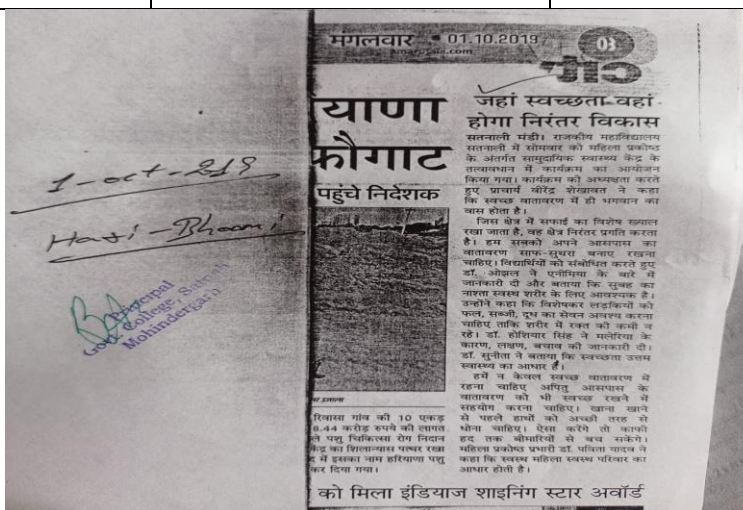 1-oct-219
Hari-Bhoomi
Principal
Govt. College, Satnali
Mohindergarh
मंगलवार • 01.10.2019
03
याणा
फौगाट
पहुंचे निदेशक
रिवासा गांव की 10 एकड़
8.44 करोड़ रुपये की लागत
ले पशु चिकित्सा रोग निदान
केंद्र का शिलान्यास पत्थर रखा
द में इसका नाम हरियाणा पशु
कर दिया गया।
जहां स्वच्छता वहां
होगा निरंतर विकास
सतनाली मंडी। राजकीय महाविद्यालय
सतनाली में सोमवार को महिला प्रकोष्ठ
के अंतर्गत सामुदायिक स्वास्थ्य केंद्र के
तत्वावधान में कार्यक्रम का आयोजन
किया गया। कार्यक्रम की अध्यक्षता करते
हुए प्राचार्य वीरेंद्र शेखावत ने कहा
कि स्वच्छ वातावरण में ही भगवान का
वास होता है।
जिस क्षेत्र में सफाई का विशेष ख्याल
रखा जाता है, वह क्षेत्र निरंतर प्रगति करता
है। हम सबको अपने आसपास का
वातावरण साफ-सुथरा बनाए रखना
चाहिए। विद्यार्थियों को संबोधित करते हुए
डॉ. ओझल ने एनीमिया के बारे में
जानकारी दी और बताया कि सुबह का
नाश्ता स्वस्थ शरीर के लिए आवश्यक है।
उन्होंने कहा कि विशेषकर लड़कियों को
फल, सब्जी, दूध का सेवन अवश्य करना
चाहिए ताकि शरीर में रक्त की कमी न
रहे। डॉ. होशियार सिंह ने मलेरिया के
कारण, लक्षण, बचाव की जानकारी दी।
डॉ. सुनीता ने बताया कि स्वच्छता उत्तम
स्वास्थ्य का आधार है।
हमें न केवल स्वच्छ वातावरण में
रहना चाहिए अपितु आसपास के
वातावरण को भी स्वच्छ रखने में
सहयोग करना चाहिए। खाना खाने
से पहले हाथों को अच्छी तरह से
धोना चाहिए। ऐसा करेंगे तो काफी
हद तक बीमारियों से बच सकेंगे।
महिला प्रकोष्ठ प्रभारी डॉ. पविता यादव ने
कहा कि स्वस्थ महिला स्वस्थ परिवार का
आधार होती है।
को मिला इंडियाज शाइनिंग स्टार अवॉर्ड